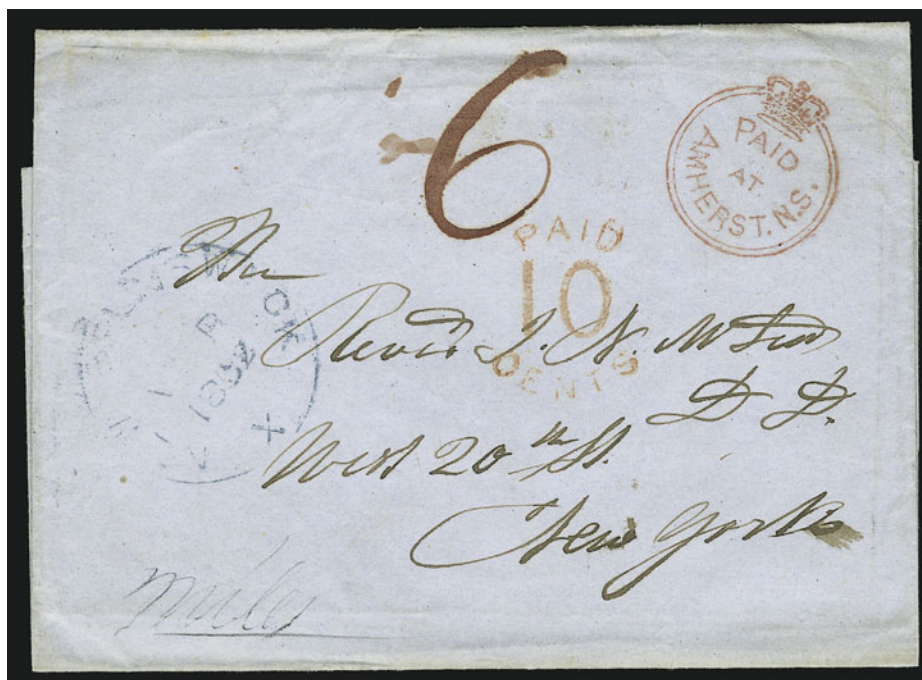 6
PAID
AT.
AMHERST. N.S.
PAID
10
CENTS
The
Revd J. N. McLeod
D D.
1852
West 20th St.
New York